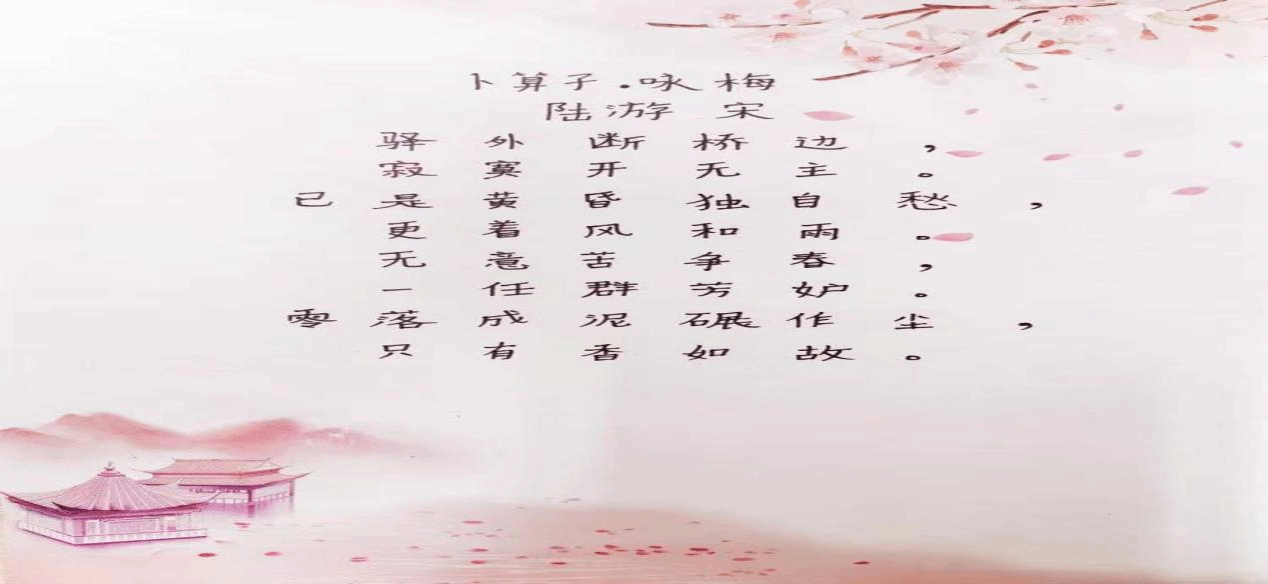 卜算子.咏梅
陆游 宋
驿外断桥边，
寂寞开无主。
已是黄昏独自愁，
更着风和雨。
无意苦争春，
一任群芳妒。
零落成泥碾作尘，
只有香如故。